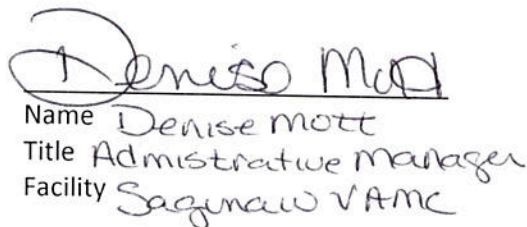 Denise Mott
Name Denise Mott
Title Admistrative Manager
Facility Saginaw VAMC